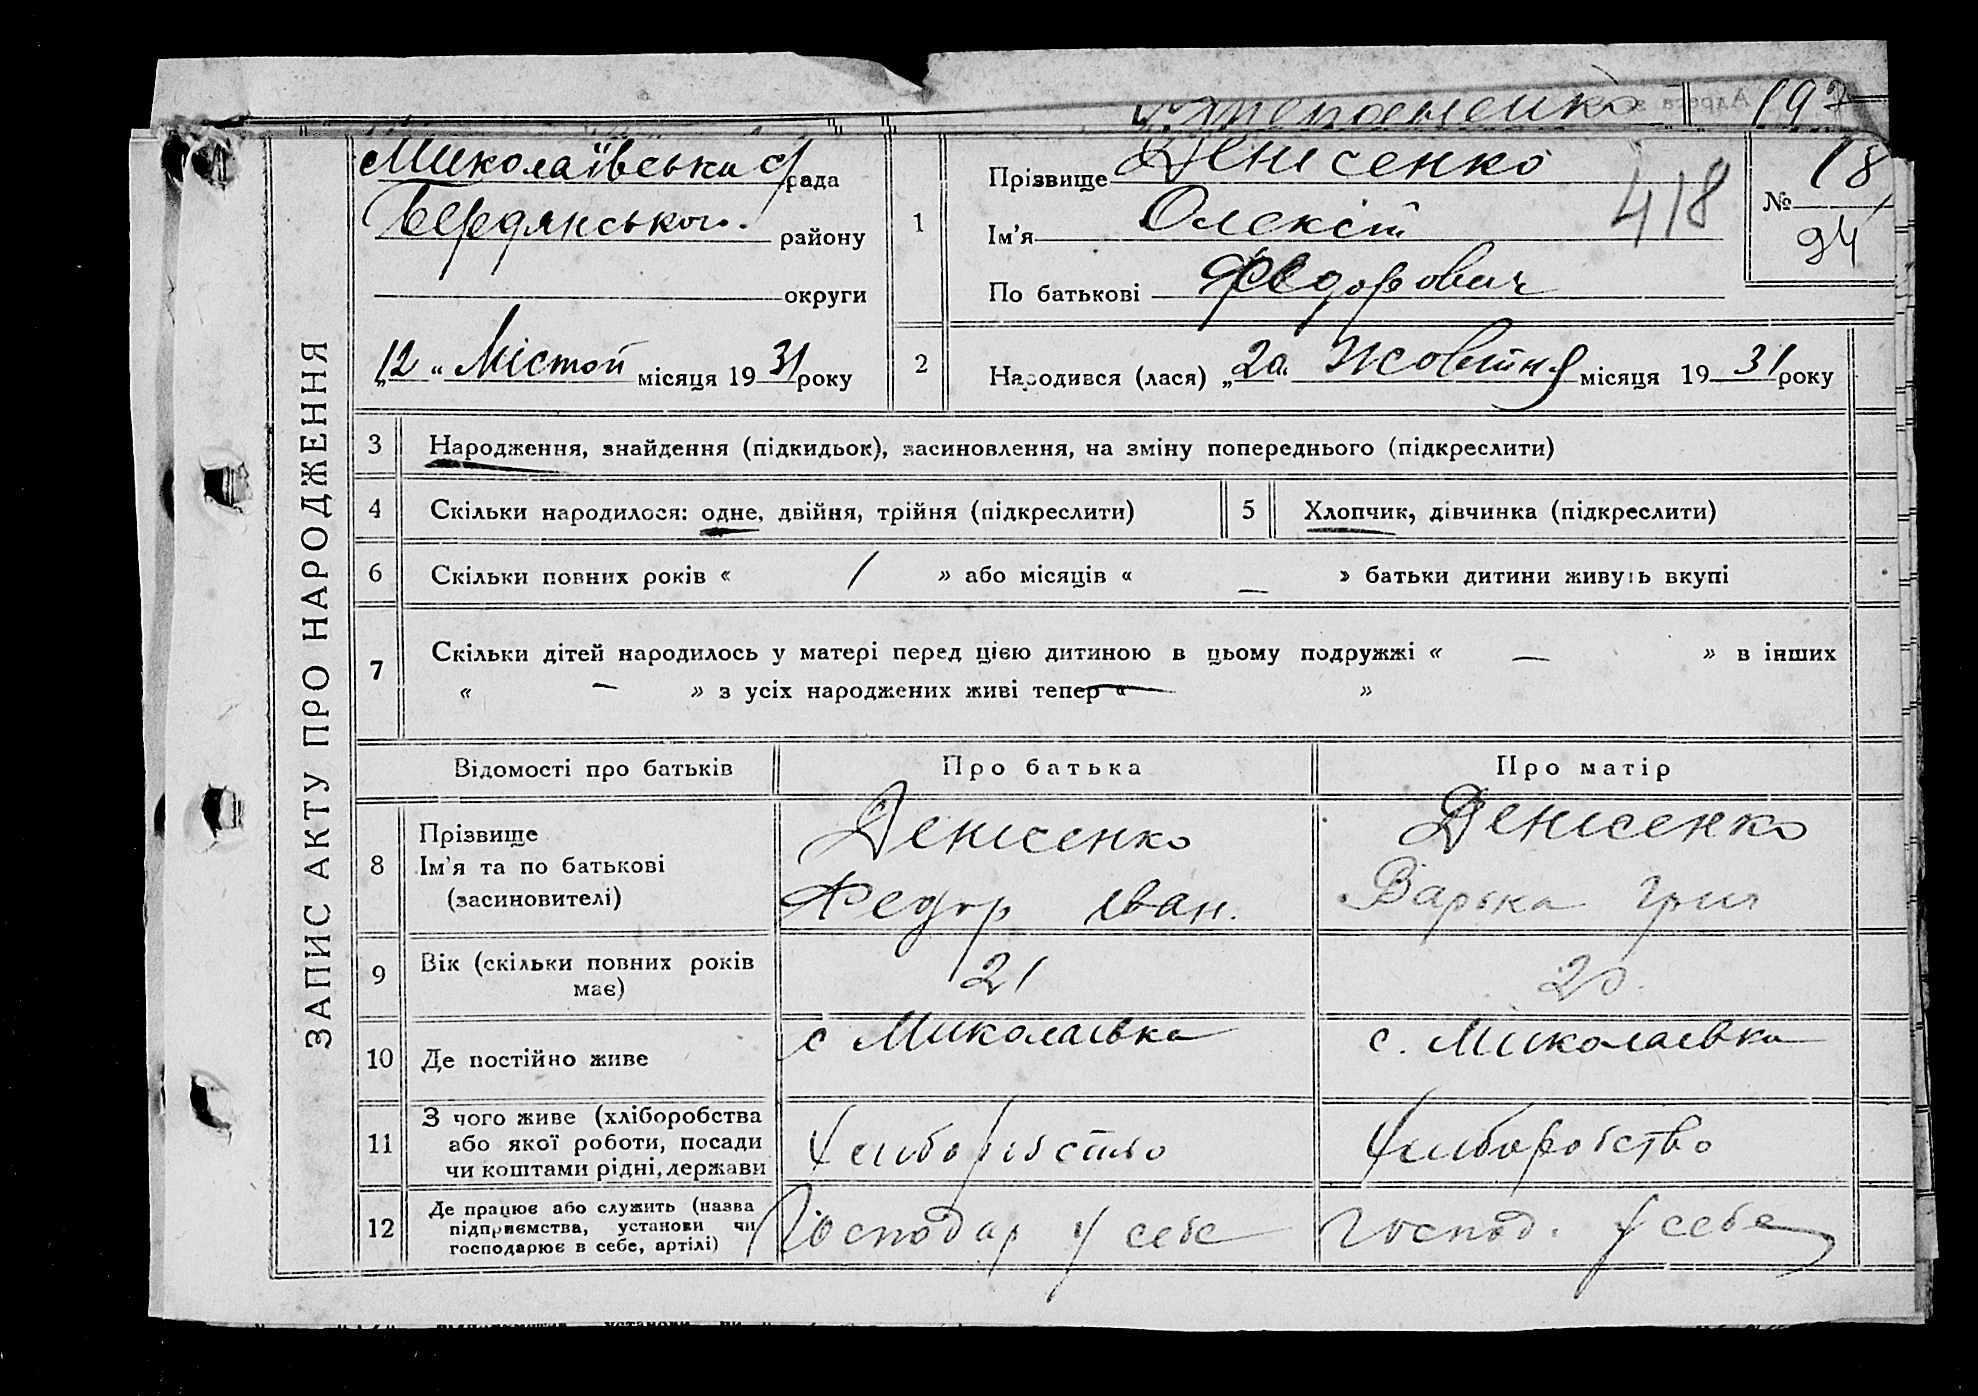 Степаненко 197
ЗАПИС АКТУ ПРО НАРОДЖЕННЯ
Миколаївська с/рада
Бердянського району
округи
„12“ Лістоп місяця 1931 року
1
Прізвище Денісенко
Ім'я Олексій
418
По батькові Федорович
№ 18
94
2
Народився (лася) „20“ Жовтня місяця 1931 року
3 Народження, знайдення (підкидьок), засиновлення, на зміну попереднього (підкреслити)
4 Скільки народилося: одне, двійня, трійня (підкреслити)
5 Хлопчик, дівчинка (підкреслити)
6 Скільки повних років « 1 » або місяців « — » батьки дитини живуть вкупі
7 Скільки дітей народилось у матері перед цією дитиною в цьому подружжі « — » в інших
« — » з усіх народжених живі тепер « — »
Відомості про батьків
Про батька
Про матір
8 Прізвище
Ім'я та по батькові
(засиновителі)
Денісенко
Федор Іван.
Денісенко
Варька Григ
9 Вік (скільки повних років
має)
21
20.
10 Де постійно живе
с Миколаївка
с. Миколаївка
11 З чого живе (хліборобства
або якої роботи, посади
чи коштами рідні, держави
Хлиборобство
Хлиборобство
12 Де працює або служить (назва
підприємства, установи чи
господарює в себе, артілі)
Господар у себе
Господ. у себе